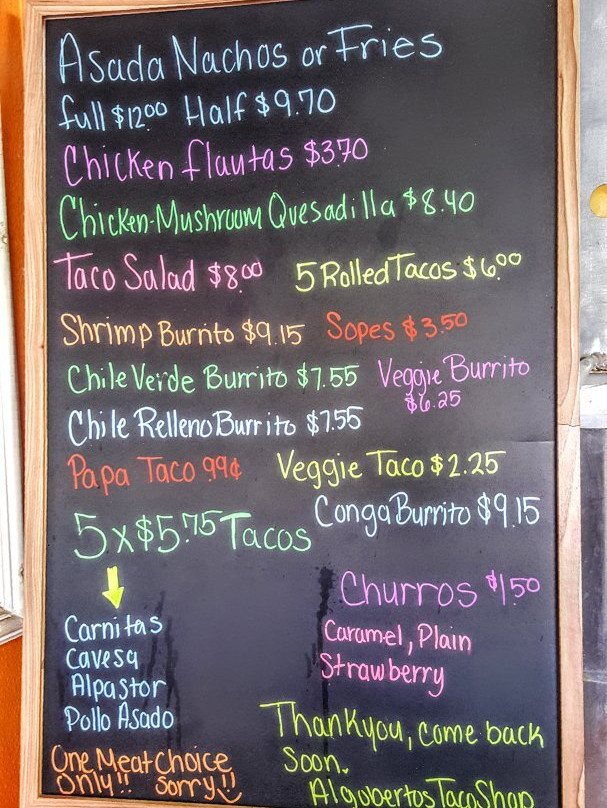 Asada Nachos or Fries
full $12.00 Half $9.70
Chicken flautas $3.70
Chicken-Mushroom Quesadilla $8.40
Taco Salad $8.00 5 Rolled Tacos $6.00
Shrimp Burrito $9.15 Sopes $3.50
Chile Verde Burrito $7.55 Veggie Burrito
$6.25
Chile Relleno Burrito $7.55
Papa Taco 99¢ Veggie Taco $2.25
5 x $5.75 Tacos Conga Burrito $9.15
Churros $1.50
Carnitas Caramel, Plain
Cavesa Strawberry
Alpastor
Pollo Asado
Thankyou, come back
Soon.
One Meat Choice
Only!! Sorry!!
Algobertos Taco Shop